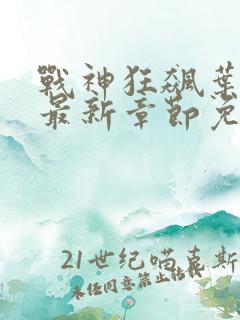 戰神狂飆葉
最新章節免
21世纪喵克斯
未经同意禁止转载